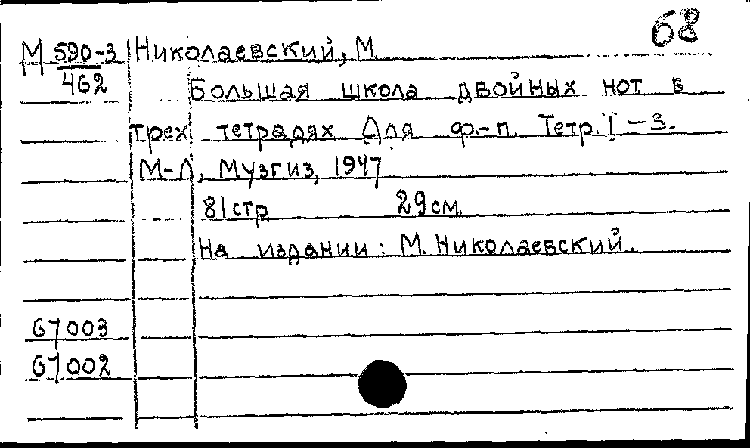 68
М 590-3 Николаевский, М.
462
Большая школа двойных нот в
трех тетрадях Для ф.-п. Тетр. I – 3.
М-Л, Музгиз, 1947
81стр 29см.
На издании: М. Николаевский.
67003
67002